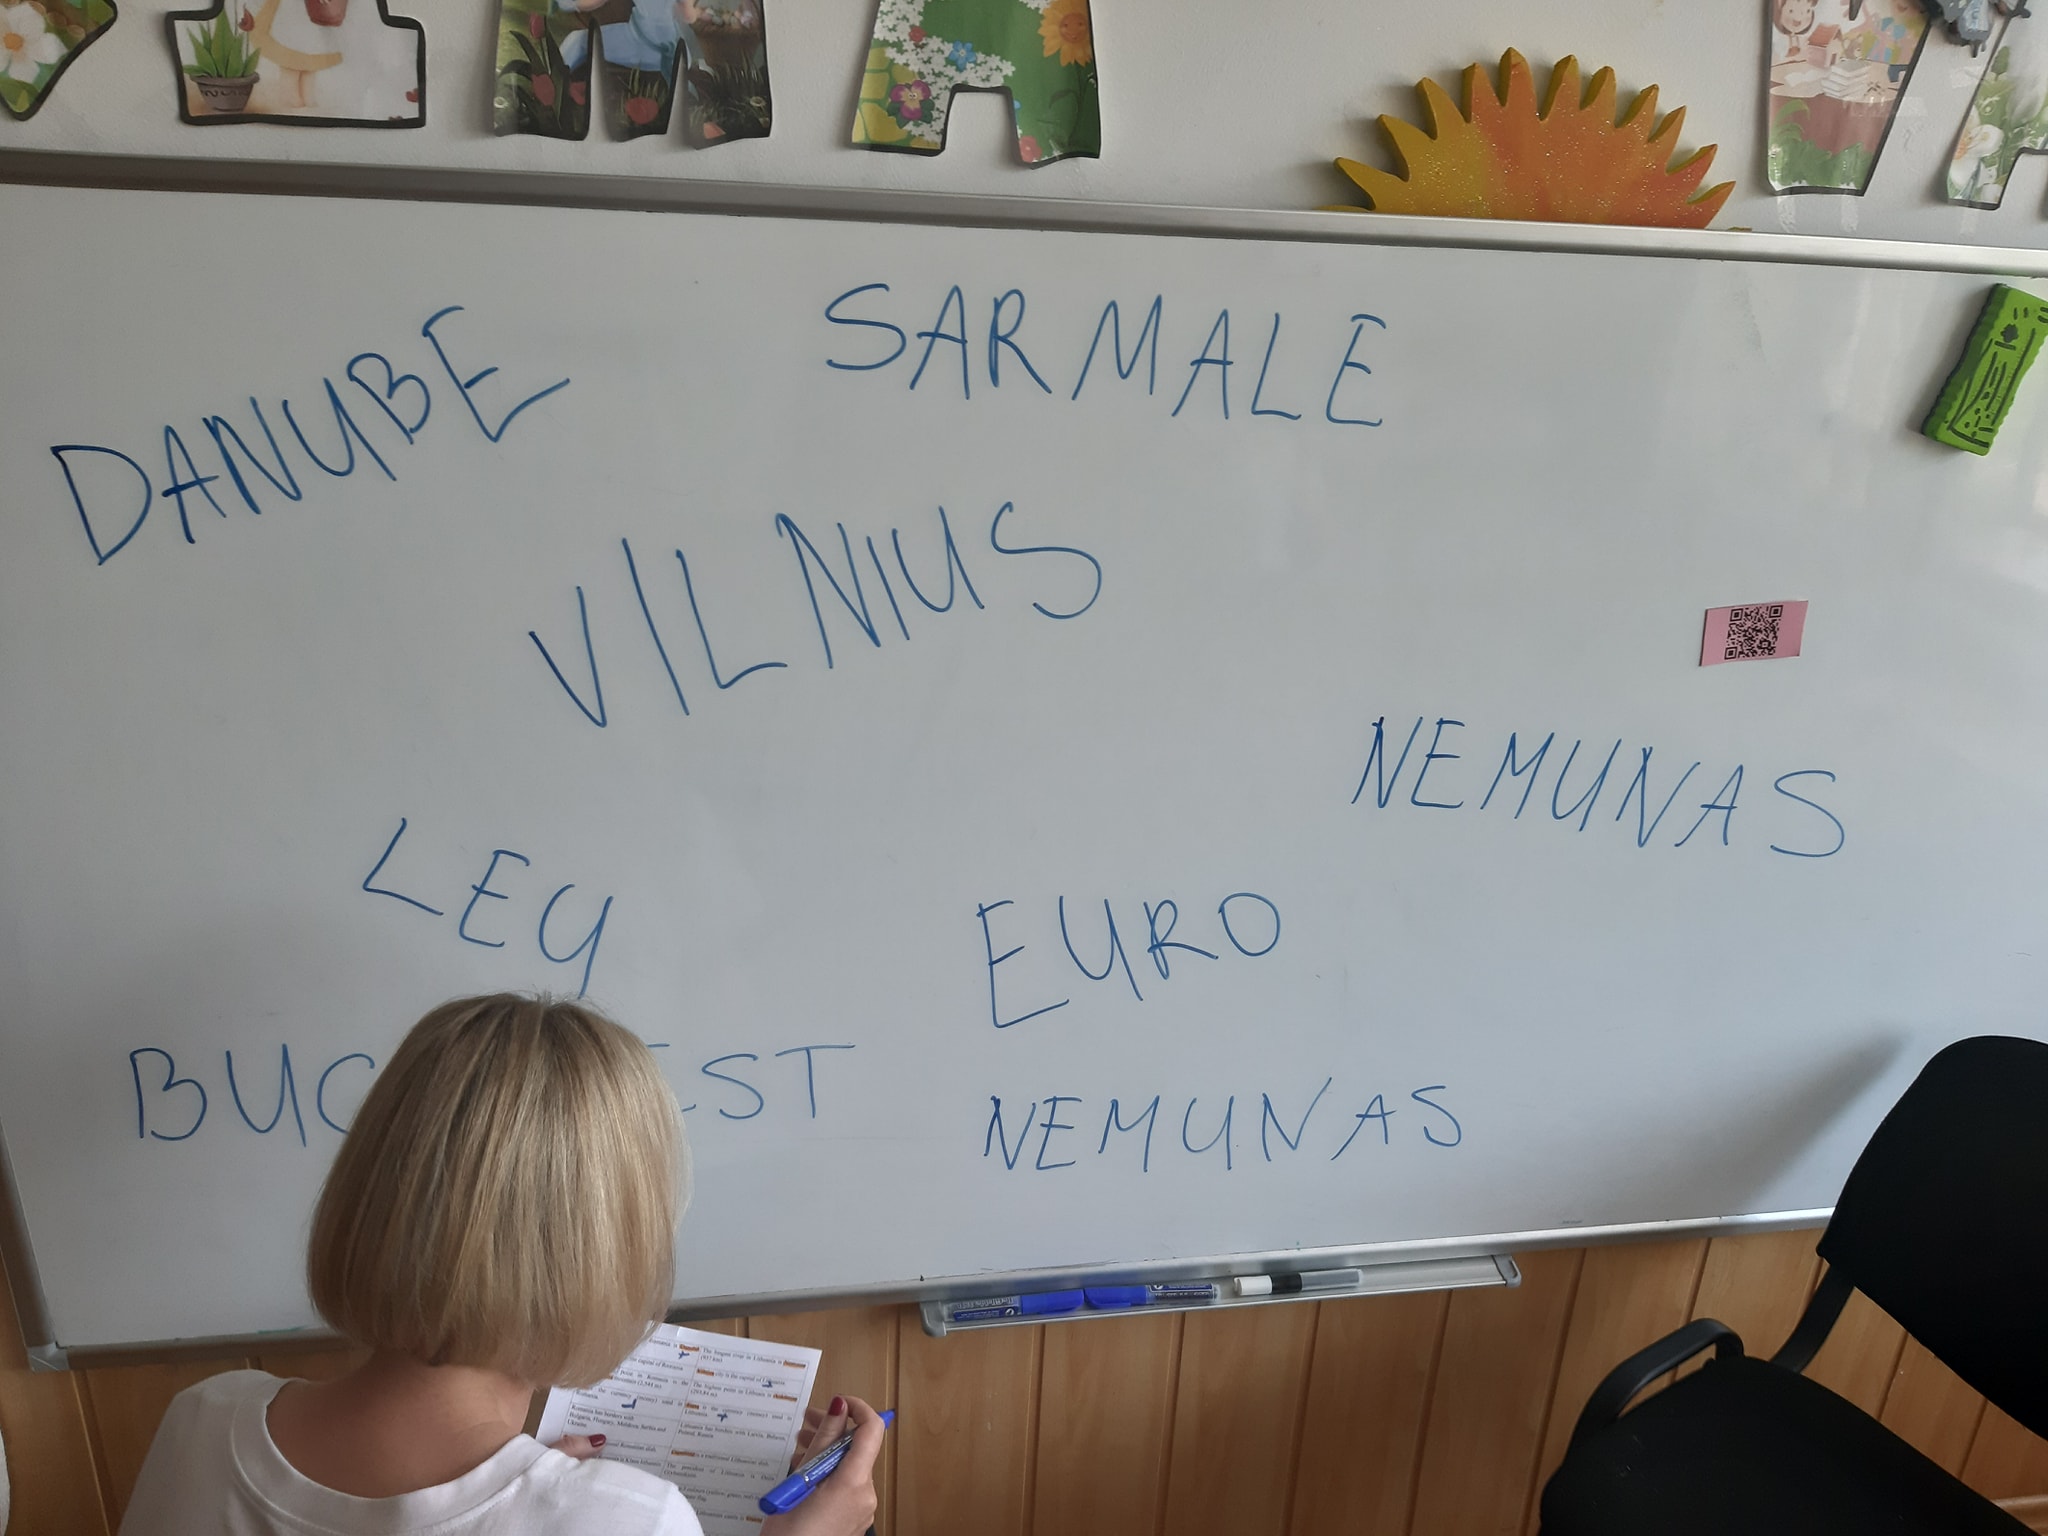 DANUBE
SARMALE
VILNIUS
NEMUNAS
LEU
EURO
BUC EST
NEMUNAS
The longest river in Lithuania is
(937 km)
the capital of Romania
city is the capital of Lithuania.
point in Romania is the
(2,544 m)
The highest point in Lithuania is
(293,84 m)
the currency (money) used in
Romania.
is the currency (money) used in
Lithuania.
Romania has borders with
Bulgaria, Hungary, Moldova, Serbia and
Ukraine
Lithuania has borders with Latvia, Belarus,
Poland, Russia
Romanian dish.
is a traditional Lithuanian dish.
is Klaus Iohannis
The president of Lithuania is